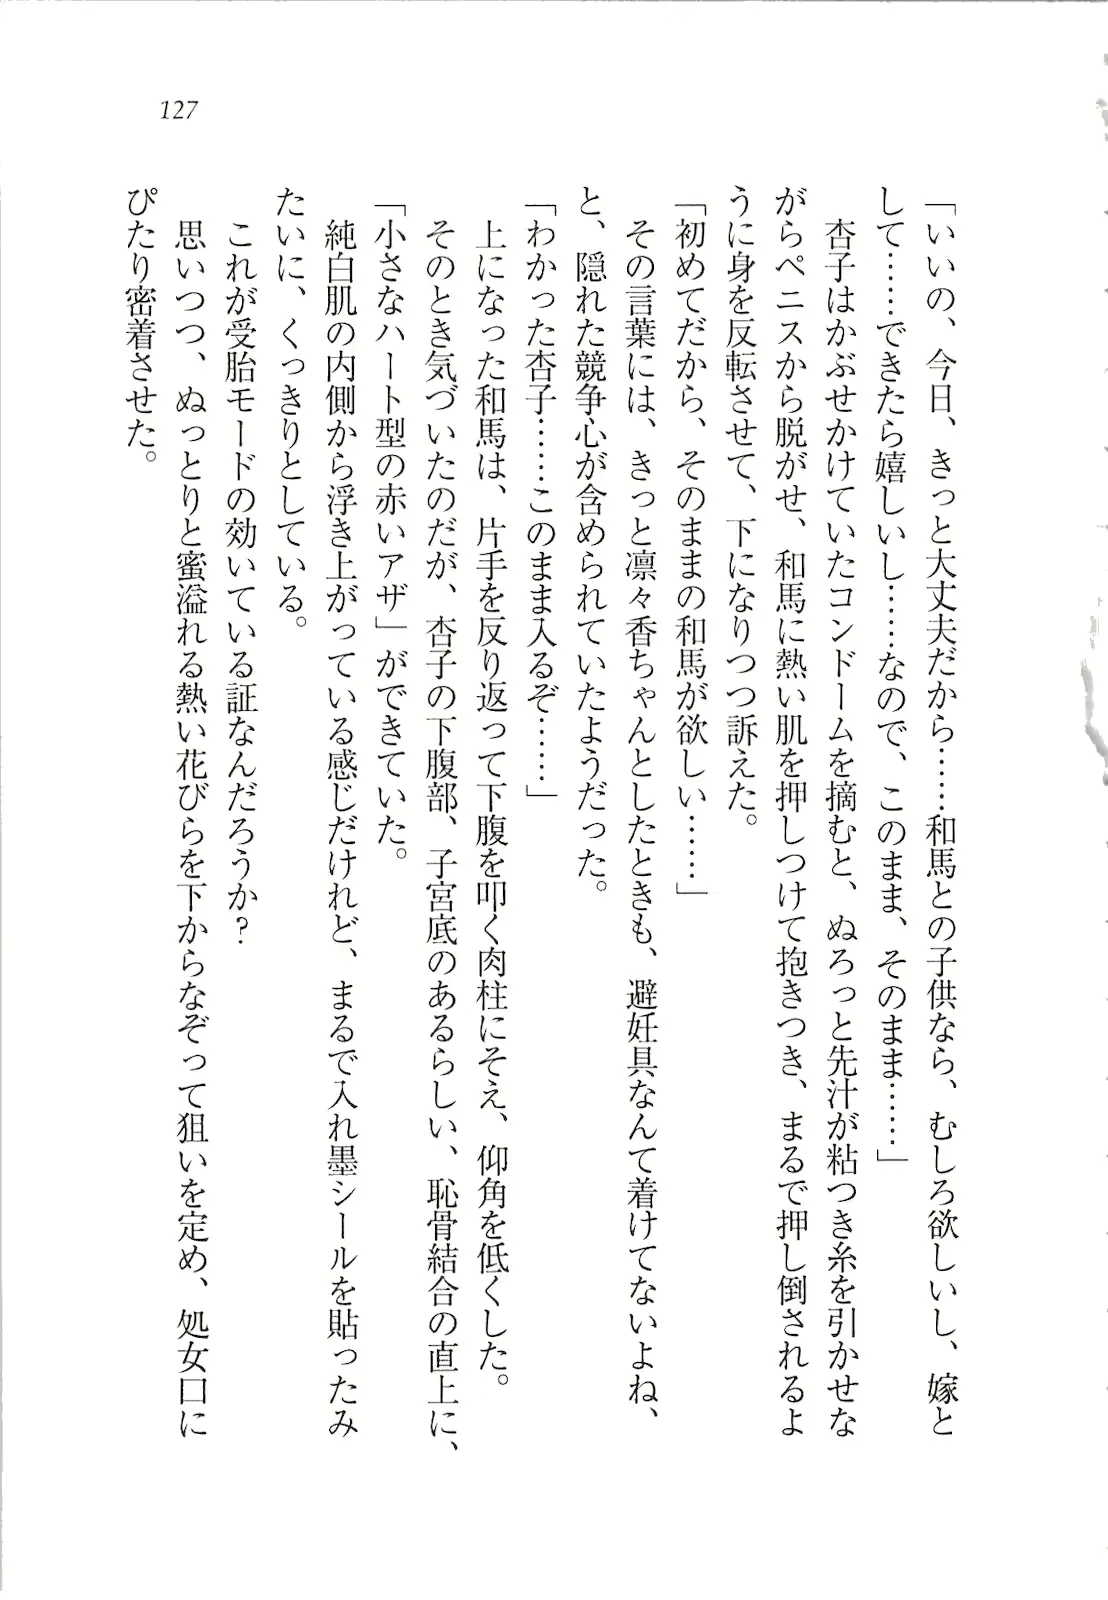 127
「いいの、今日、きっと大丈夫だから……和馬との子供なら、むしろ欲しいし、嫁と
して……できたら嬉しいし……なので、このまま、そのまま……」
杏子はかぶせかけていたコンドームを摘むと、ぬろっと先汁が粘つき糸を引かせな
がらペニスから脱がせ、和馬に熱い肌を押しつけて抱きつき、まるで押し倒されるよ
うに身を反転させて、下になりつつ訴えた。
「初めてだから、そのままの和馬が欲しい……」
その言葉には、きっと凛々香ちゃんとしたときも、避妊具なんて着けてないよね、
と、隠れた競争心が含められていたようだった。
「わかった杏子……このまま入るぞ……」
上になった和馬は、片手を反り返って下腹を叩く肉柱にそえ、仰角を低くした。
そのとき気づいたのだが、杏子の下腹部、子宮底のあるらしい、恥骨結合の直上に、
「小さなハート型の赤いアザ」ができていた。
純白肌の内側から浮き上がっている感じだけれど、まるで入れ墨シールを貼ったみ
たいに、くっきりとしている。
これが受胎モードの効いている証なんだろうか?
思いつつ、ぬっとりと蜜溢れる熱い花びらを下からなぞって狙いを定め、処女口に
ぴたり密着させた。